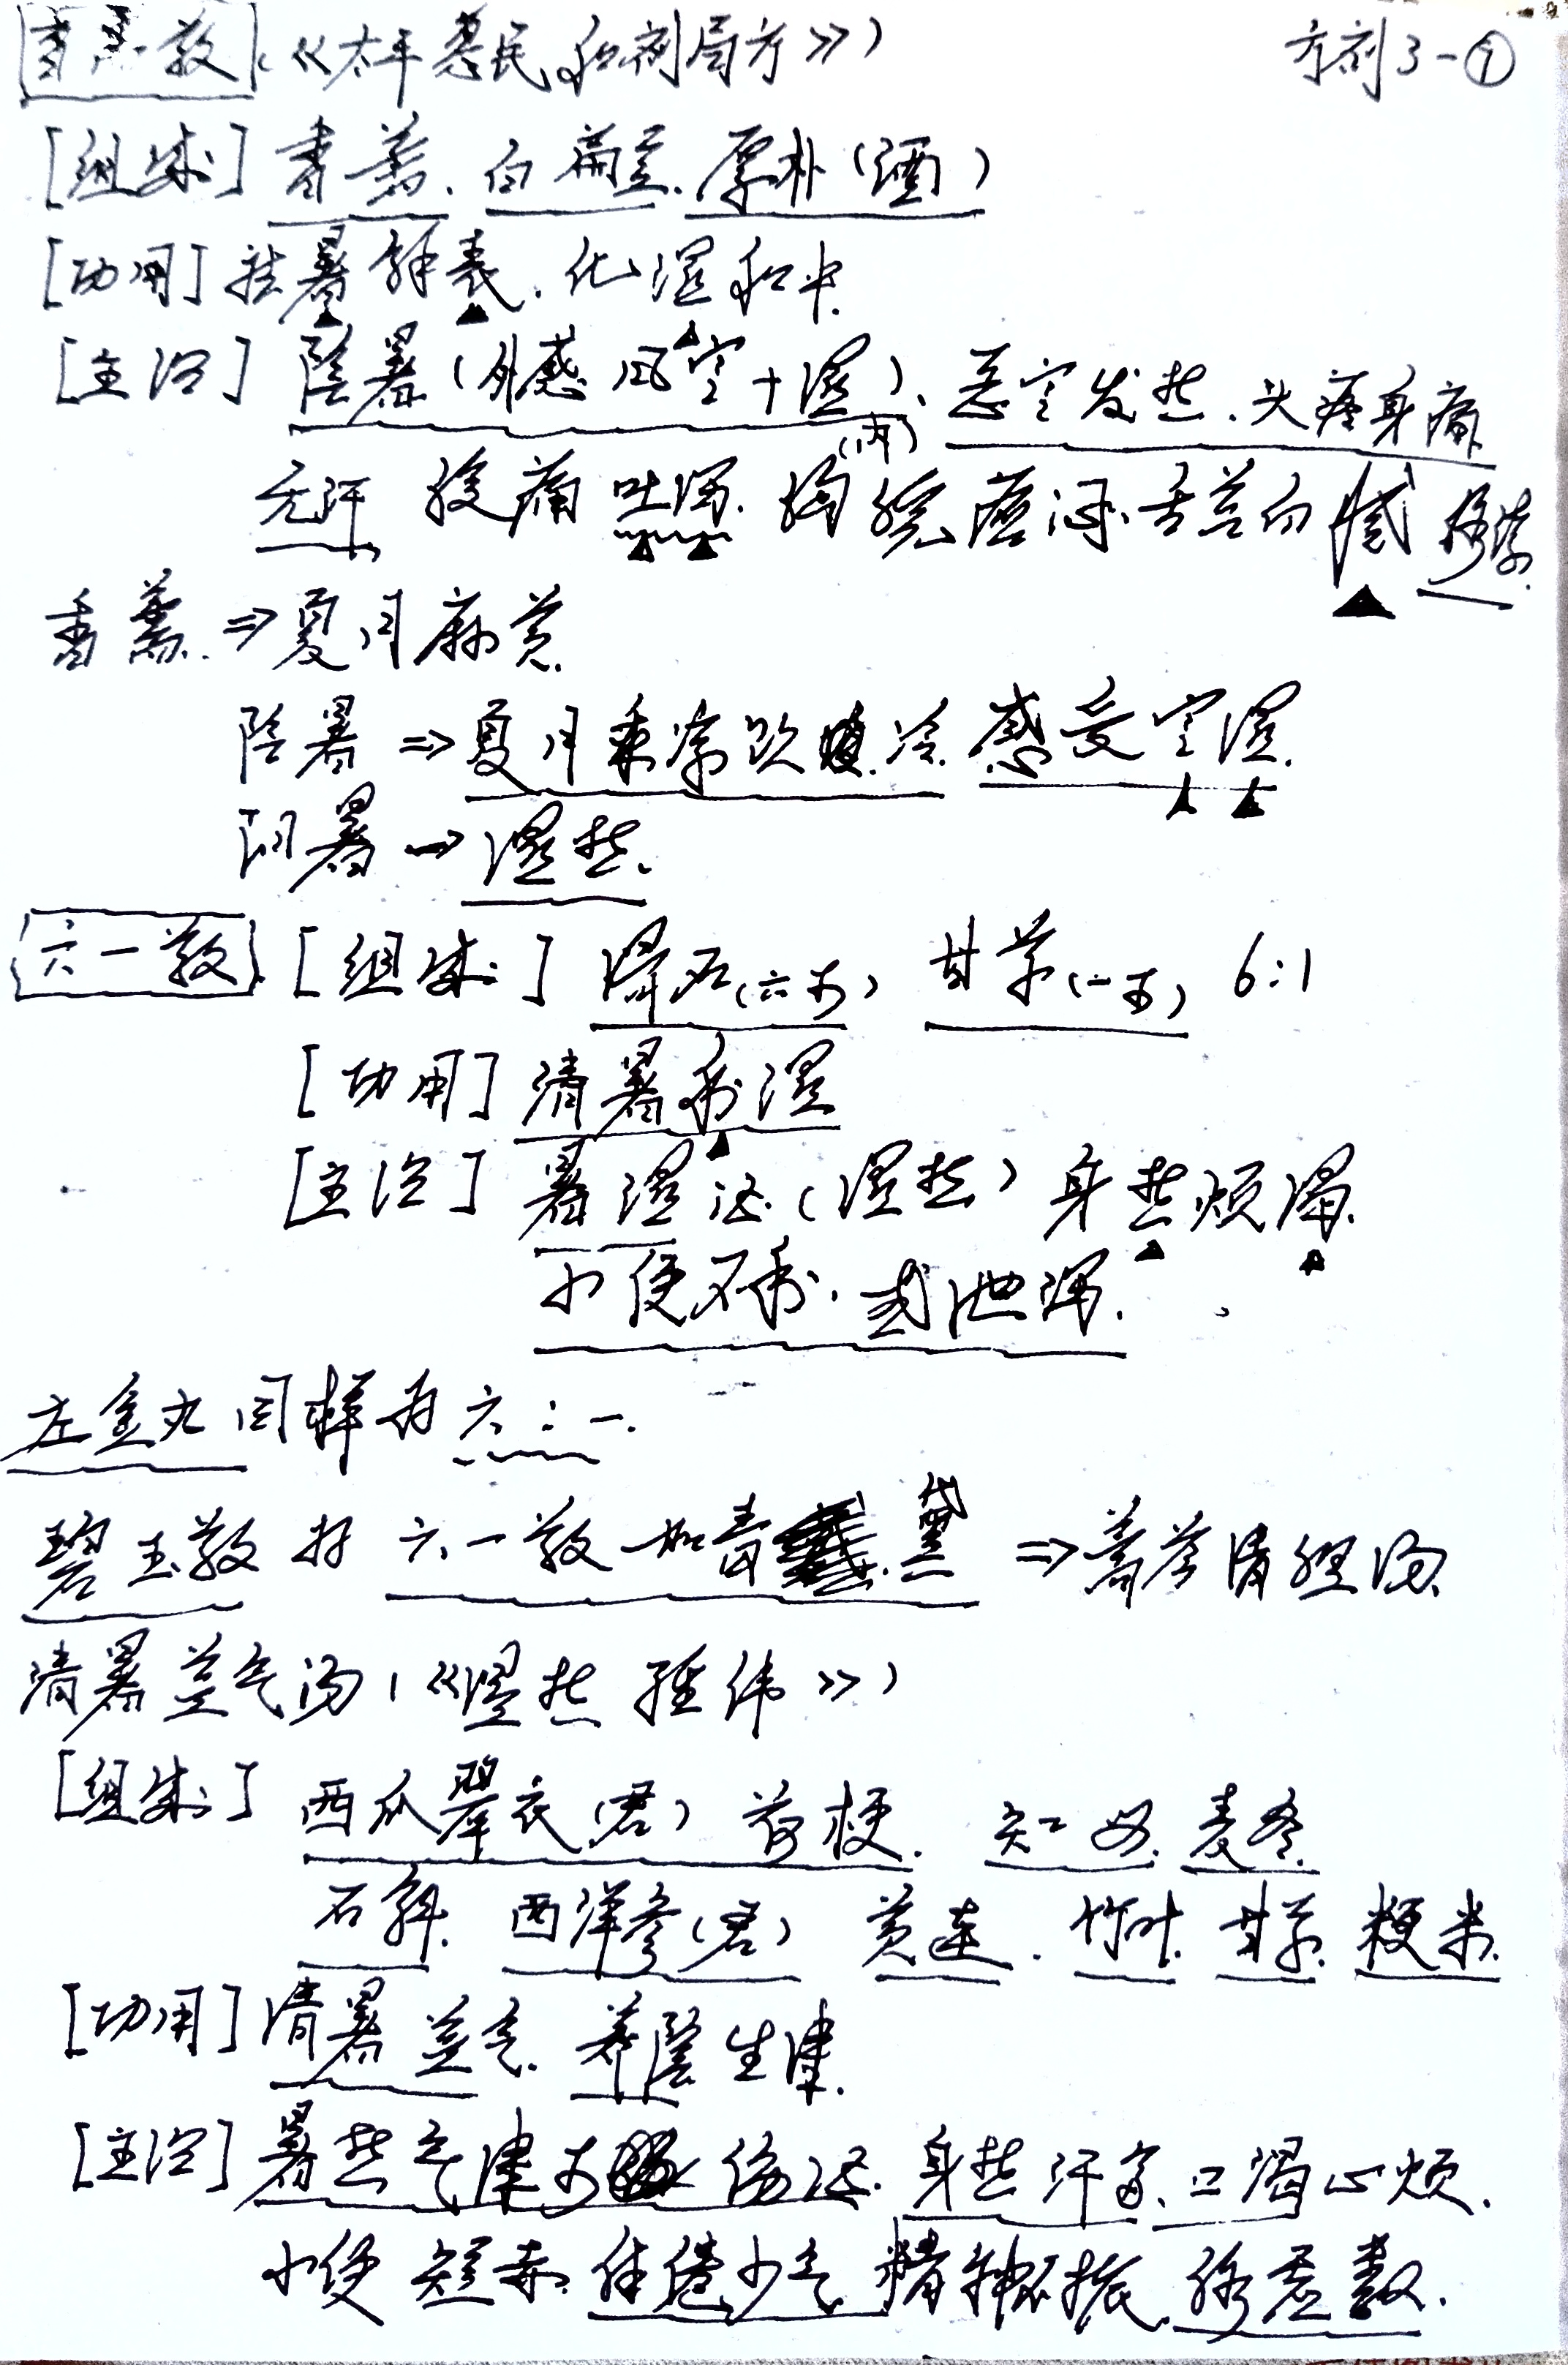 香薷散（《太平惠民和剂局方》） 方剂3-①
[组成] 香薷、白扁豆、厚朴（酒）
[功用] 祛暑解表、化湿和中.
[主治] 陰暑（外感风寒+湿）、恶寒发热、头疼身痛
（内）
无汗 腹痛吐泻. 胸脘痞闷、舌苔白腻 脉浮.
香薷. ⇒夏月麻黄.
陰暑 ⇒夏月乘凉饮冷 感受寒湿.
阳暑 → 湿热.
六一散 [组成] 滑石（六两） 甘草（一两） 6:1
[功用] 清暑利湿
[主治] 暑湿证（湿热） 身热烦渴.
小便不利、或泄泻.
左金丸 同样为 六:一.
碧玉散 为 六一散加青黛 ⇒蒿芩清胆汤
清暑益气汤（《湿热经纬》）
[组成] 西瓜翠衣（君） 荷梗. 知母. 麦冬.
石斛. 西洋参（君） 黄连. 竹叶. 甘草. 粳米.
[功用] 清暑益气. 养陰生津.
[主治] 暑热气津两伤证. 身热汗多、口渴心烦.
小便短赤. 体倦少气 精神不振. 脉虚数.